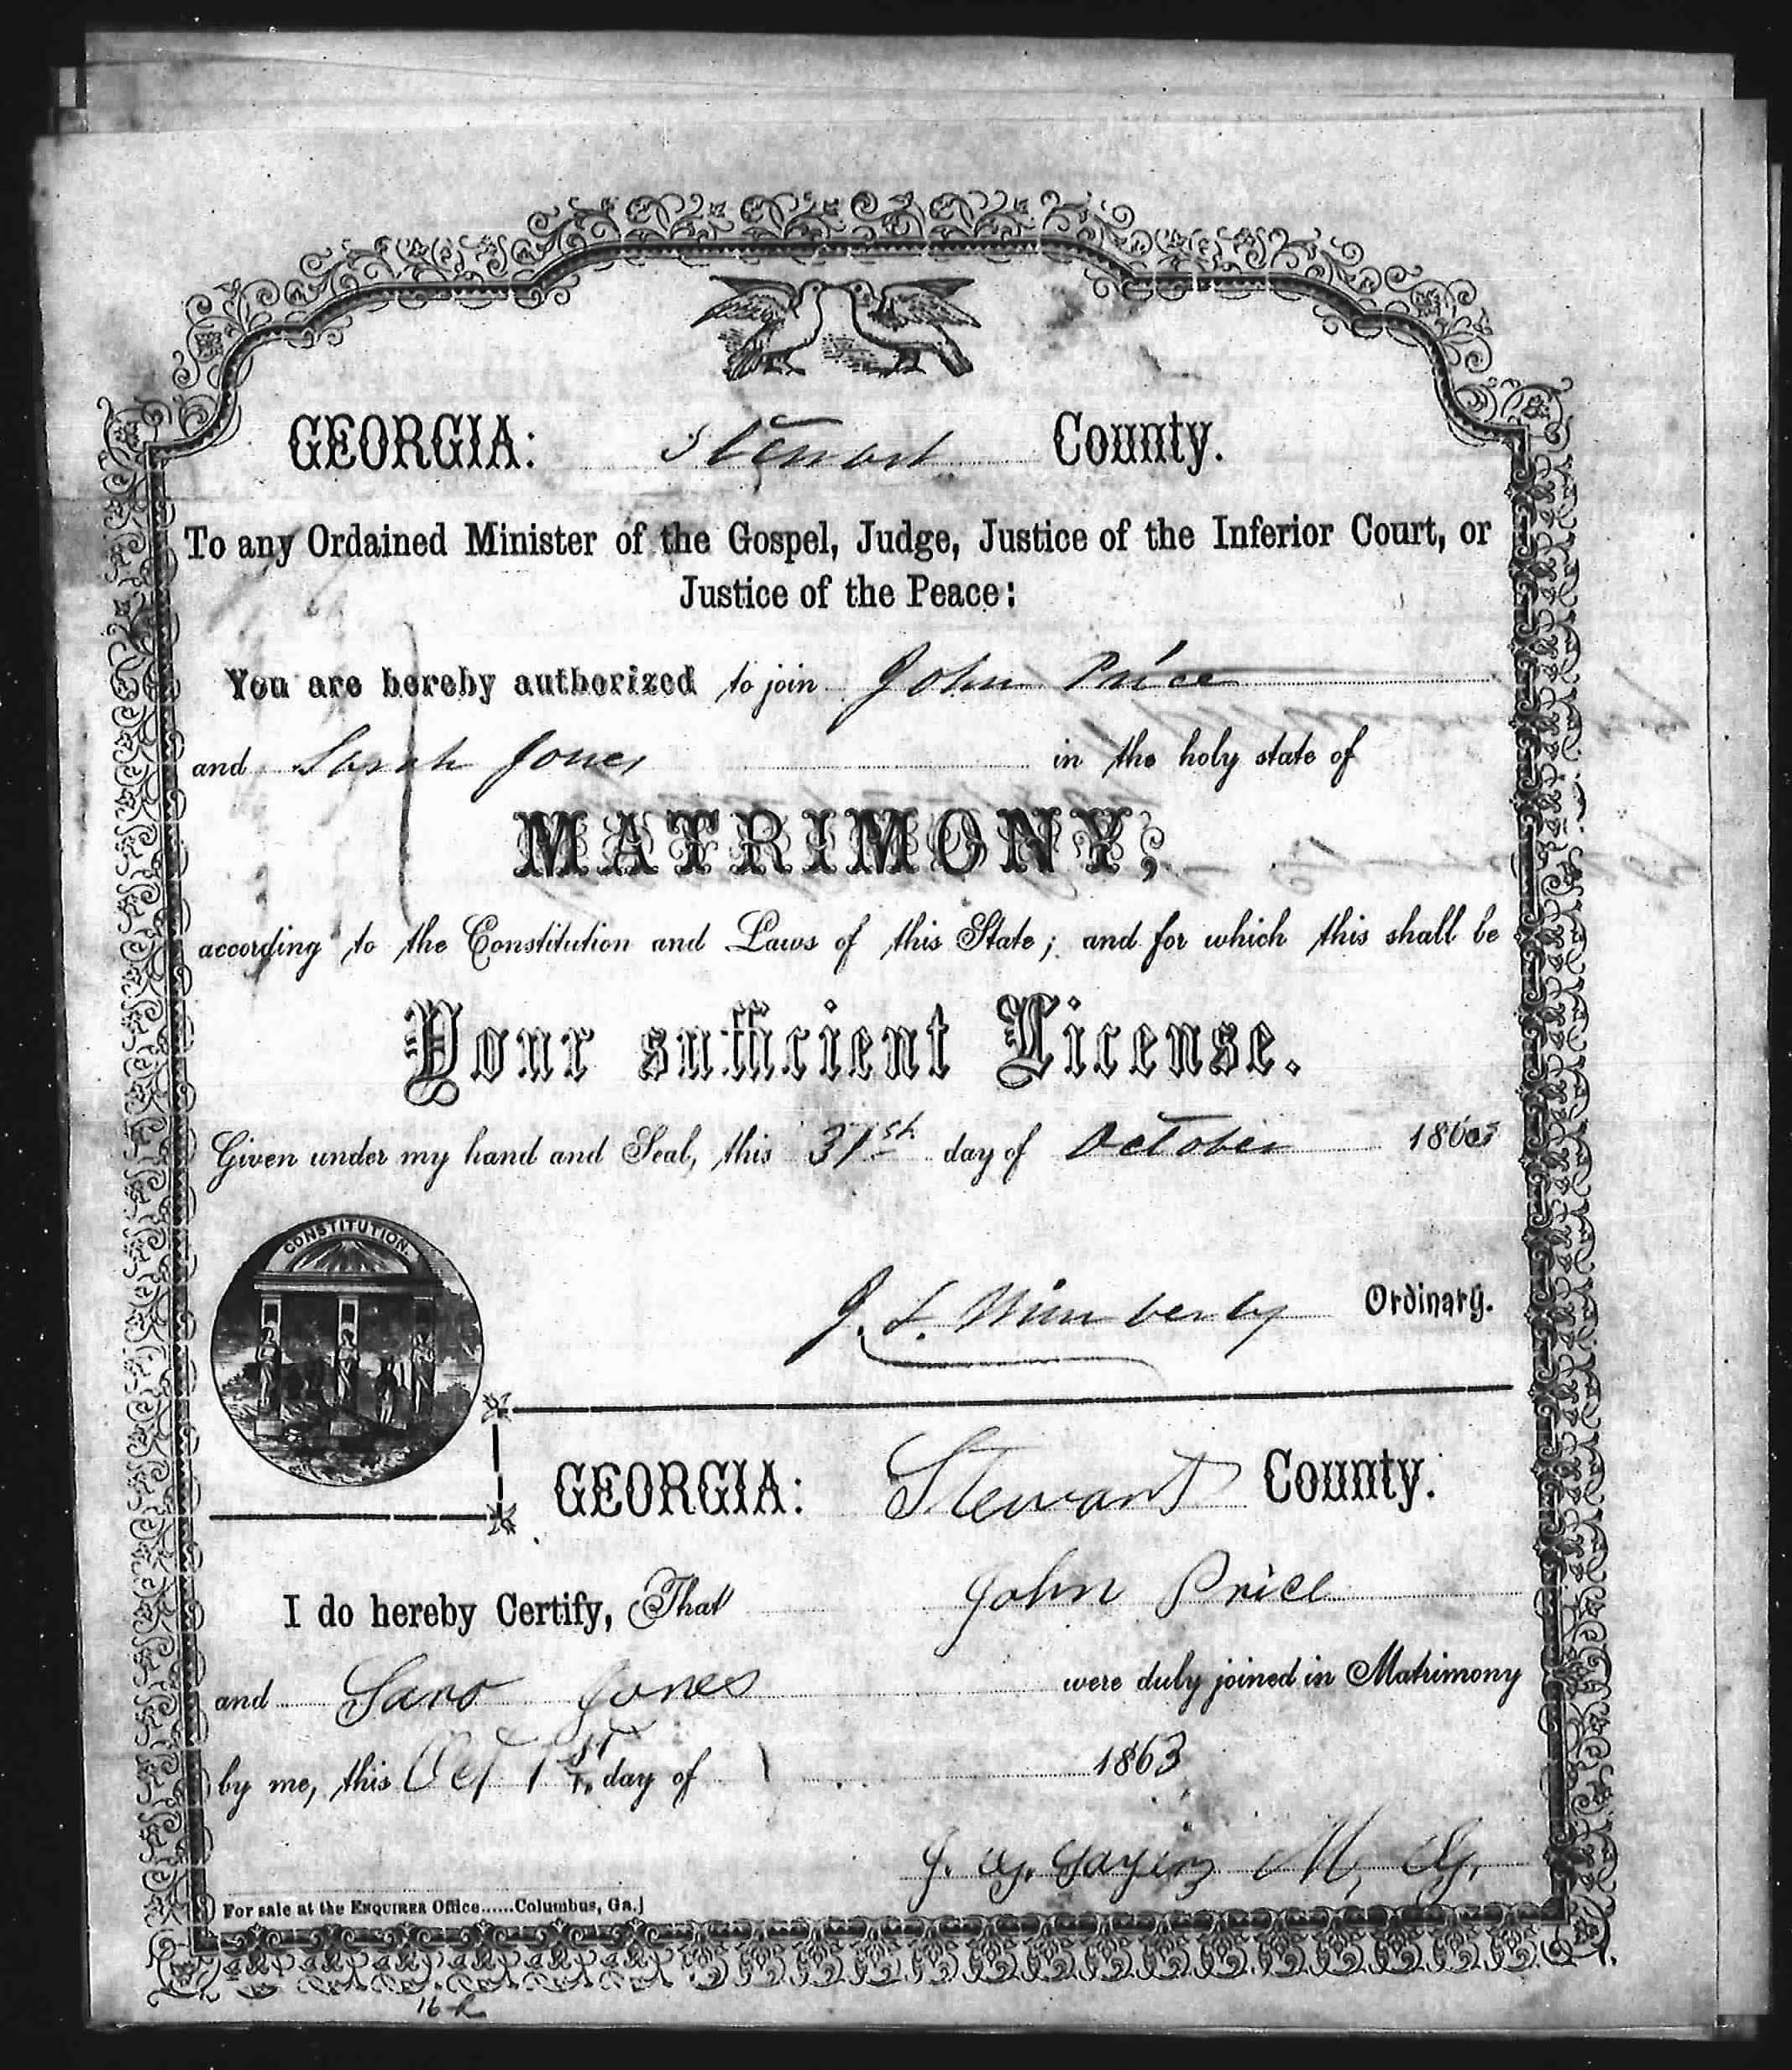 GEORGIA: Stewart County.
To any Ordained Minister of the Gospel, Judge, Justice of the Inferior Court, or
Justice of the Peace:
You are hereby authorized to join John Price
and Sarah Jones in the holy state of
MATRIMONY;
according to the Constitution and Laws of this State; and for which this shall be
Your sufficient License.
Given under my hand and Seal, this 31st day of October 1863
CONSTITUTION.
J. L. Wimberly Ordinary.
GEORGIA: Stewart County.
I do hereby Certify, That John Price
and Jones were duly joined in Matrimony
by me, this Oct 1st day of 1863
J. M. G.
For sale at the ENQUIRER Office......Columbus, Ga.]